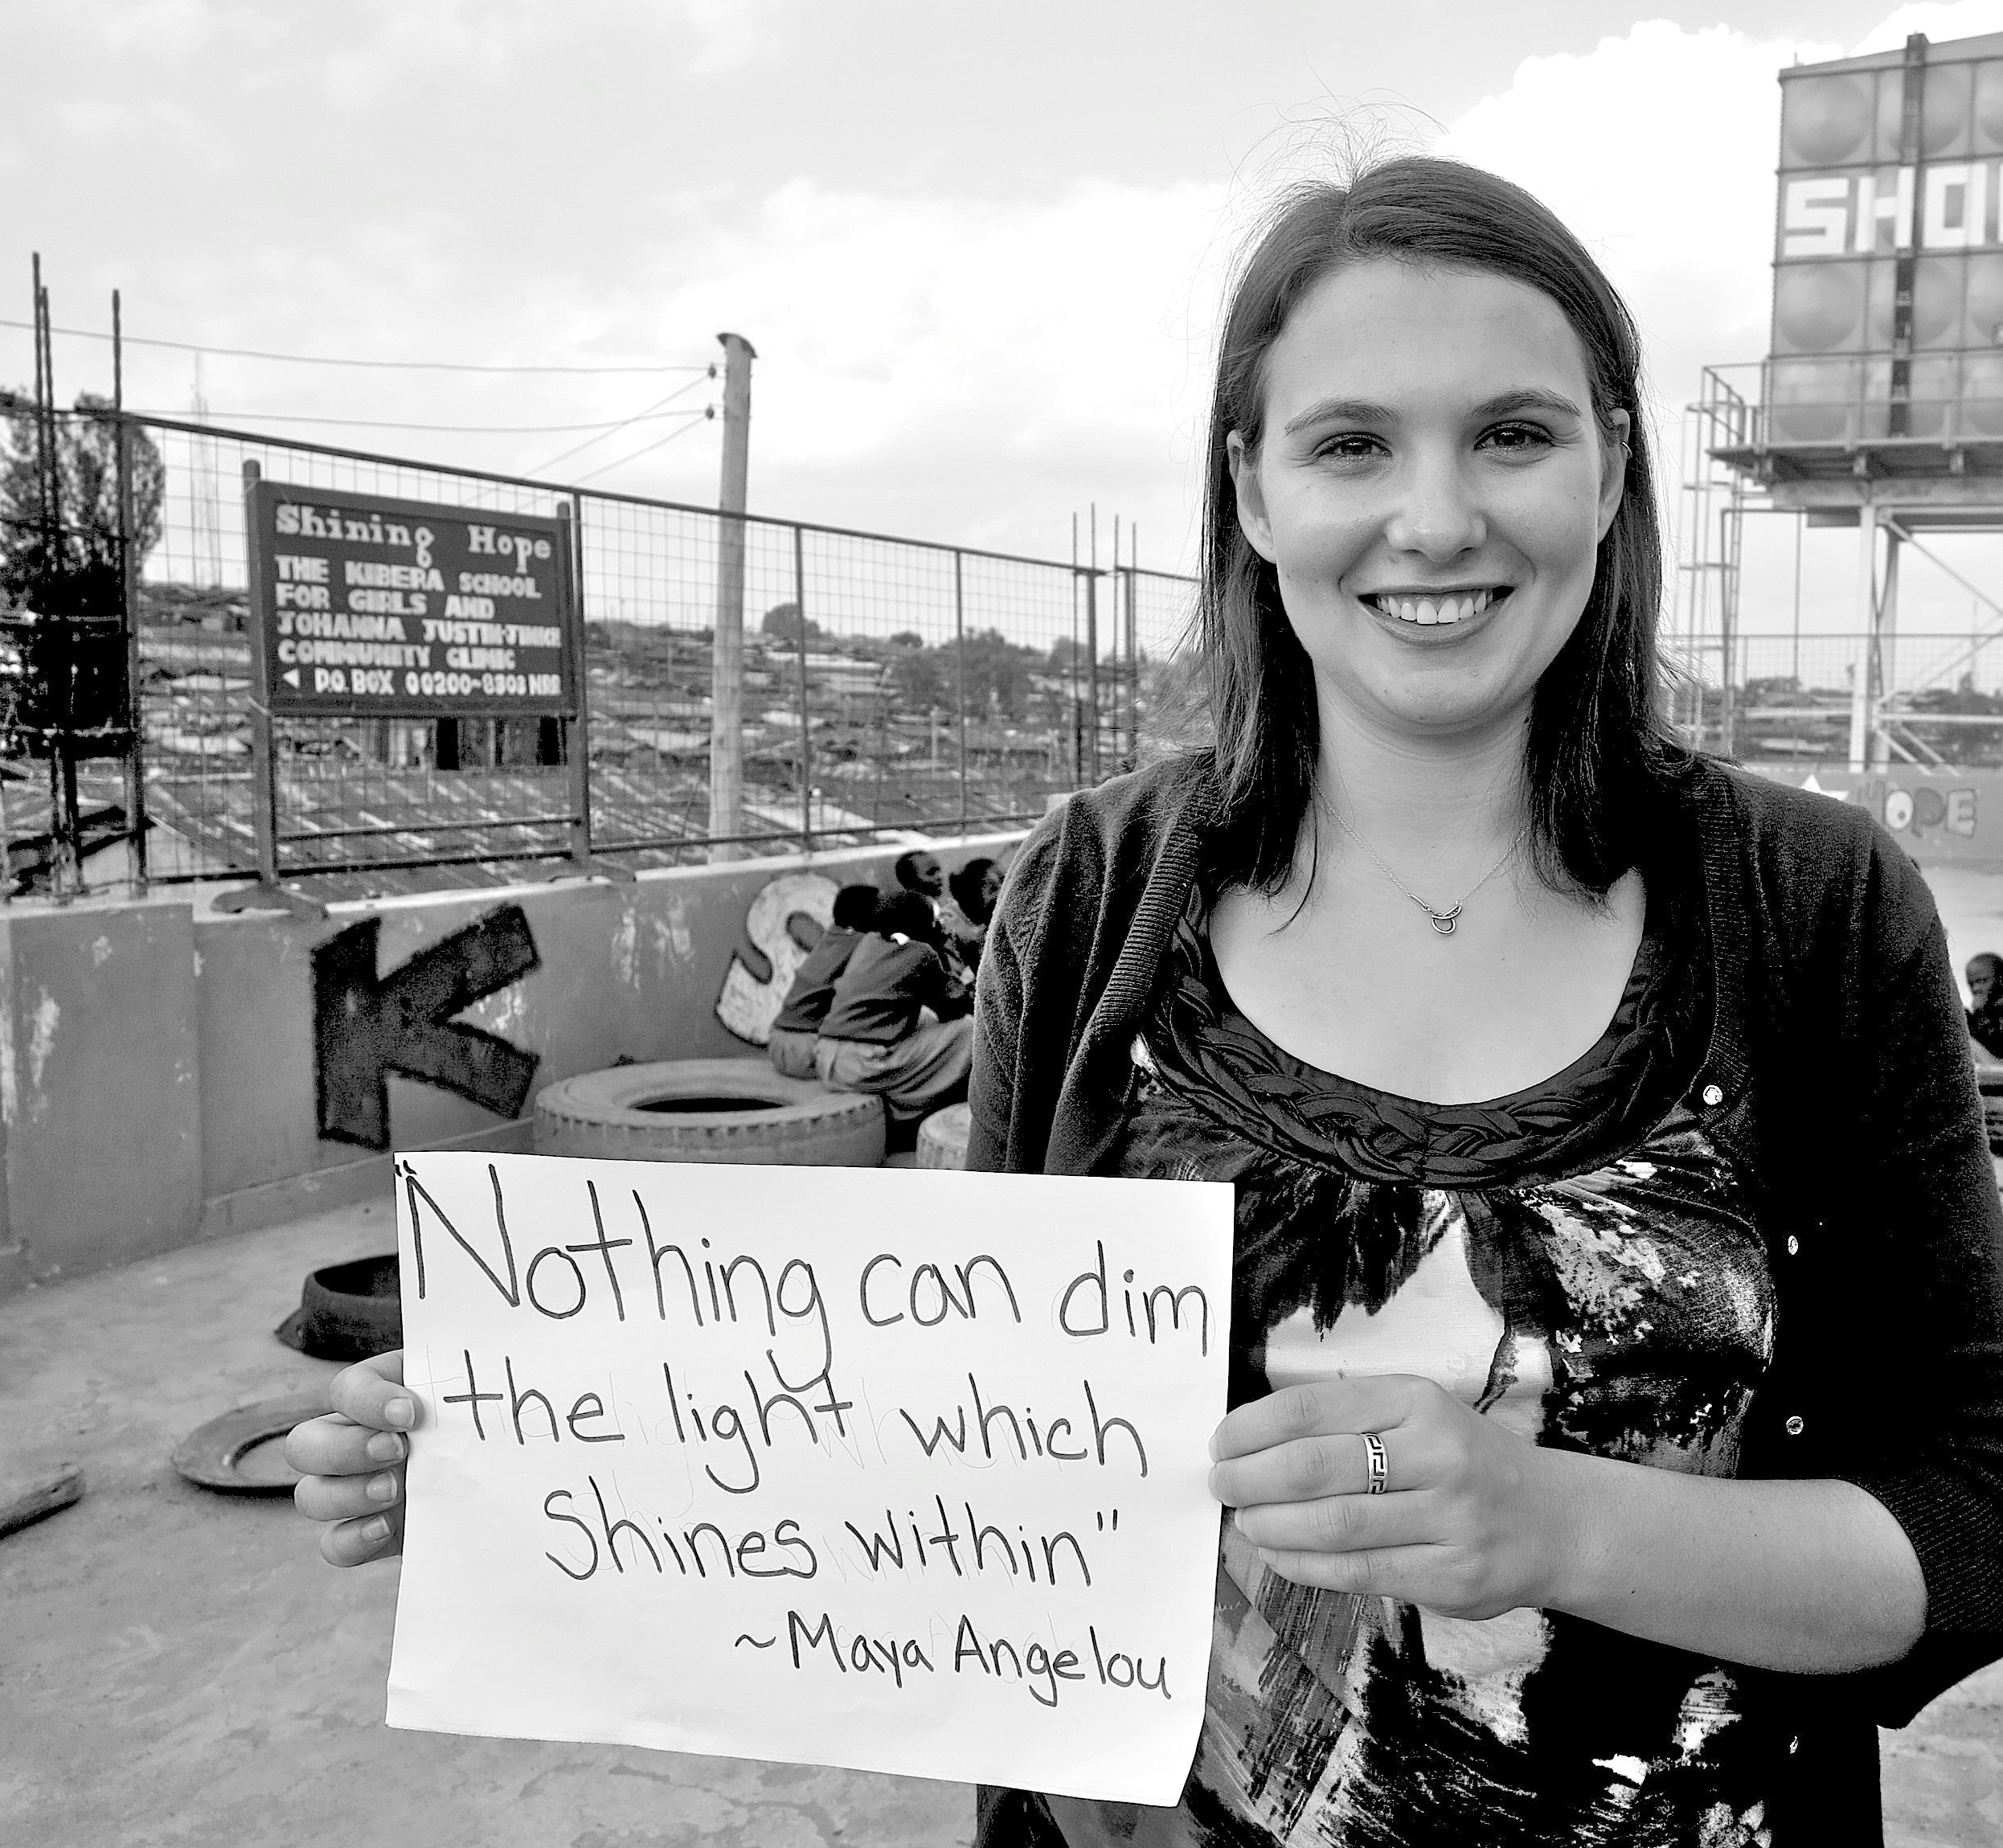 Shining Hope
THE KIBERA SCHOOL
FOR GIRLS AND
JOHANNA JUSTIN-JINICH
COMMUNITY CLINIC
P.O. BOX 00200-8303 NRB
SHO
HOPE
K
S
"Nothing can dim
the light which
Shines within"
~Maya Angelou